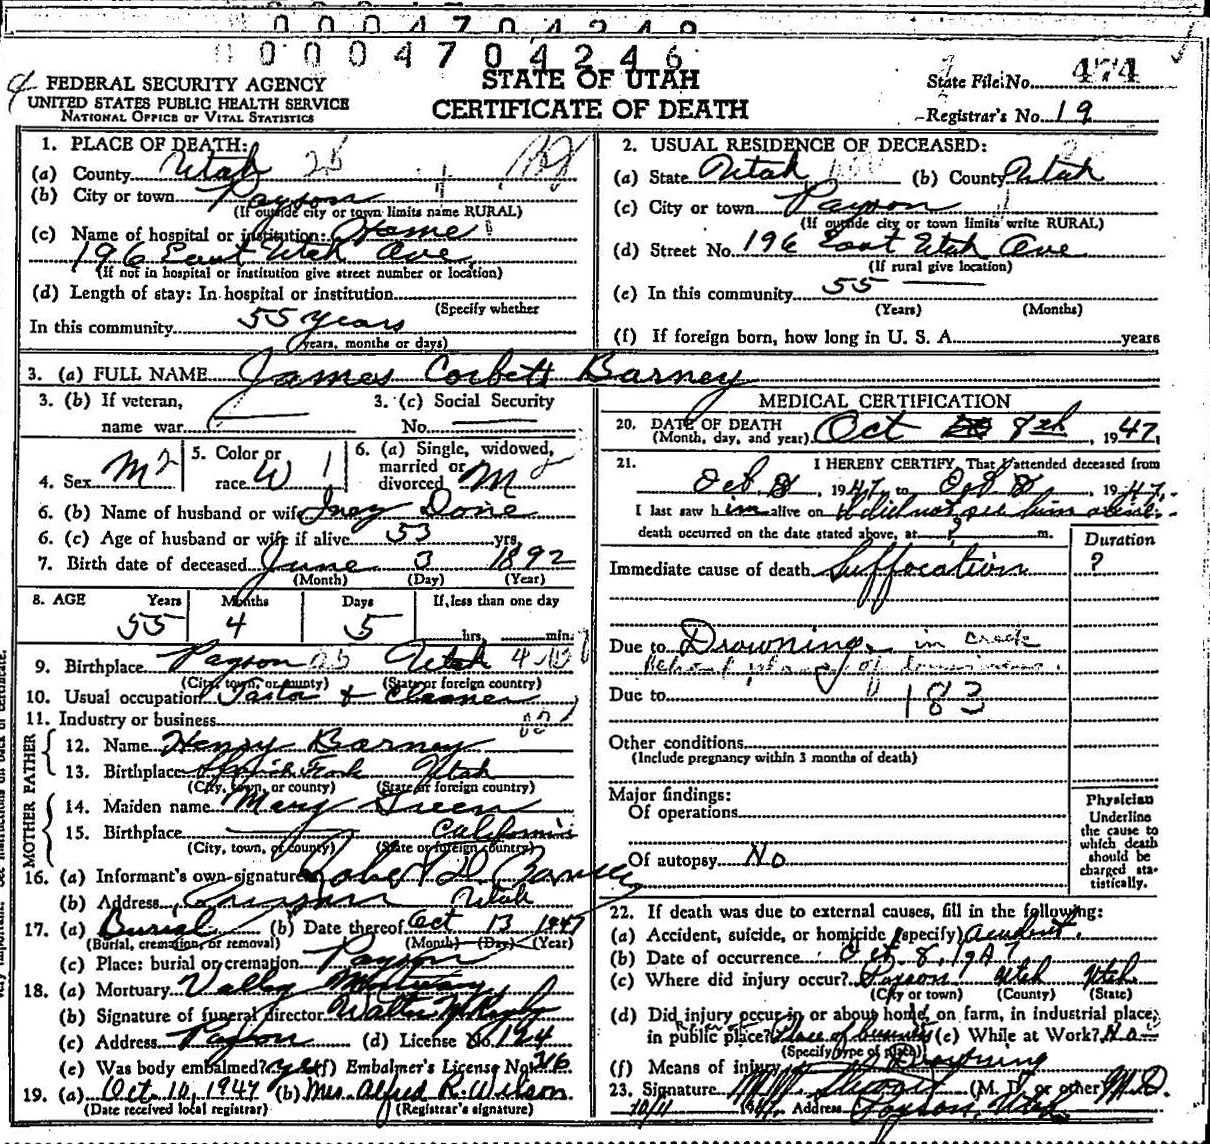 0 0 0 4 7 0 4 2 4 6
FEDERAL SECURITY AGENCY
UNITED STATES PUBLIC HEALTH SERVICE
NATIONAL OFFICE OF VITAL STATISTICS
STATE OF UTAH
CERTIFICATE OF DEATH
State File No. 474
Registrar's No. 19
1. PLACE OF DEATH:
(a) County Utah
(b) City or town Payson
(If outside city or town limits name RURAL)
(c) Name of hospital or institution: Home
196 East Utah Ave
(If not in hospital or institution give street number or location)
(d) Length of stay: In hospital or institution
(Specify whether
In this community 55 years
years, months or days)
2. USUAL RESIDENCE OF DECEASED:
(a) State Utah (b) County Utah
(c) City or town Payson
(If outside city or town limits write RURAL)
(d) Street No. 196 East Utah Ave
(If rural give location)
(e) In this community 55
(Years) (Months)
(f) If foreign born, how long in U. S. A. years
3. (a) FULL NAME James Corbett Barney
3. (b) If veteran, name war
3. (c) Social Security No.
4. Sex M
5. Color or race W
6. (a) Single, widowed, married or divorced M
6. (b) Name of husband or wife Inez Done
6. (c) Age of husband or wife if alive 53 yrs.
7. Birth date of deceased June 3 1892
(Month) (Day) (Year)
8. AGE Years Months Days If less than one day
55 4 5 hrs. min.
9. Birthplace Payson Utah
(City, town, or county) (State or foreign country)
10. Usual occupation & Cleaner
11. Industry or business
FATHER
12. Name Henry Barney
13. Birthplace Spanish Fork Utah
(City, town, or county) (State or foreign country)
MOTHER
14. Maiden name Mary Green
15. Birthplace California
(City, town, or county) (State or foreign country)
16. (a) Informant's own signature D. Barney
(b) Address Utah
17. (a) Burial (b) Date thereof Oct 13 1947
(Burial, cremation, or removal) (Month) (Day) (Year)
(c) Place: burial or cremation Payson
18. (a) Mortuary Valley Mortuary
(b) Signature of funeral director Walter
(c) Address Payson (d) License No. 194
(e) Was body embalmed? yes (f) Embalmer's License No. 316
19. (a) Oct. 10, 1947 (b) Mrs. Alfred R. Wilson
(Date received local registrar) (Registrar's signature)
MEDICAL CERTIFICATION
20. DATE OF DEATH
(Month, day, and year) Oct 8th, 1947
21. I HEREBY CERTIFY, That I attended deceased from
Oct 8, 1947 to Oct 8, 1947
I last saw him alive on I did not see him alive.
death occurred on the date stated above, at ? m.
Duration
Immediate cause of death Suffocation ?
Due to Drowning in creek
behind place of business.
Due to 183
Other conditions
(Include pregnancy within 3 months of death)
Major findings:
Of operations
Of autopsy No
Physician
Underline
the cause to
which death
should be
charged sta-
tistically.
22. If death was due to external causes, fill in the following:
(a) Accident, suicide, or homicide (specify) Accident.
(b) Date of occurrence Oct. 8, 1947
(c) Where did injury occur? Payson Utah Utah
(City or town) (County) (State)
(d) Did injury occur in or about home, on farm, in industrial place,
in public place? Place of business (e) While at Work? No
(Specify type of place)
(f) Means of injury Drowning
23. Signature (M. D. or other) M.D.
10/11 1947 Address Payson, Utah